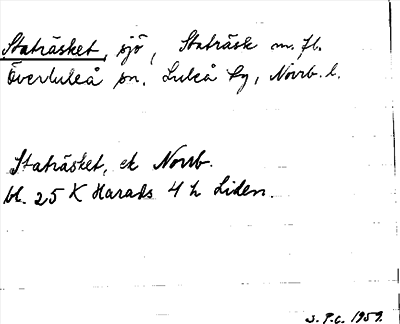 Staträsket, sjö, Staträsk m. fl.
Överluleå sn. Luleå tg, Norrb. l.
Staträsket, ek Norrb.
bl. 25 K Harads 4 h Liden.
S.P.C. 1959.